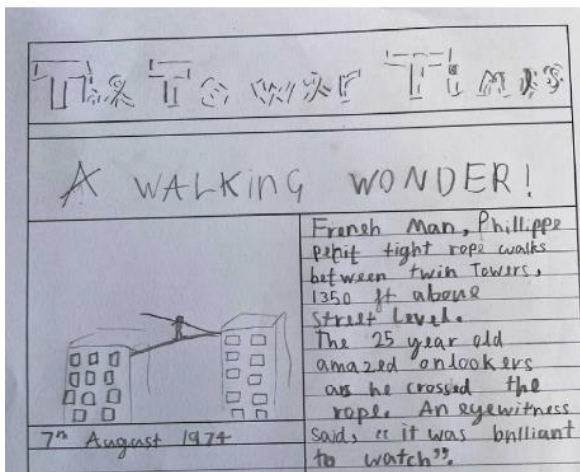 The Tower Times
A WALKING WONDER!
French Man, Phillippe
petit tight rope walks
between twin Towers,
1350 ft above
street Level.
The 25 year old
amazed onlookers
as he crossed the
rope. An eyewitness
said, "it was brilliant
to watch".
7th August 1974